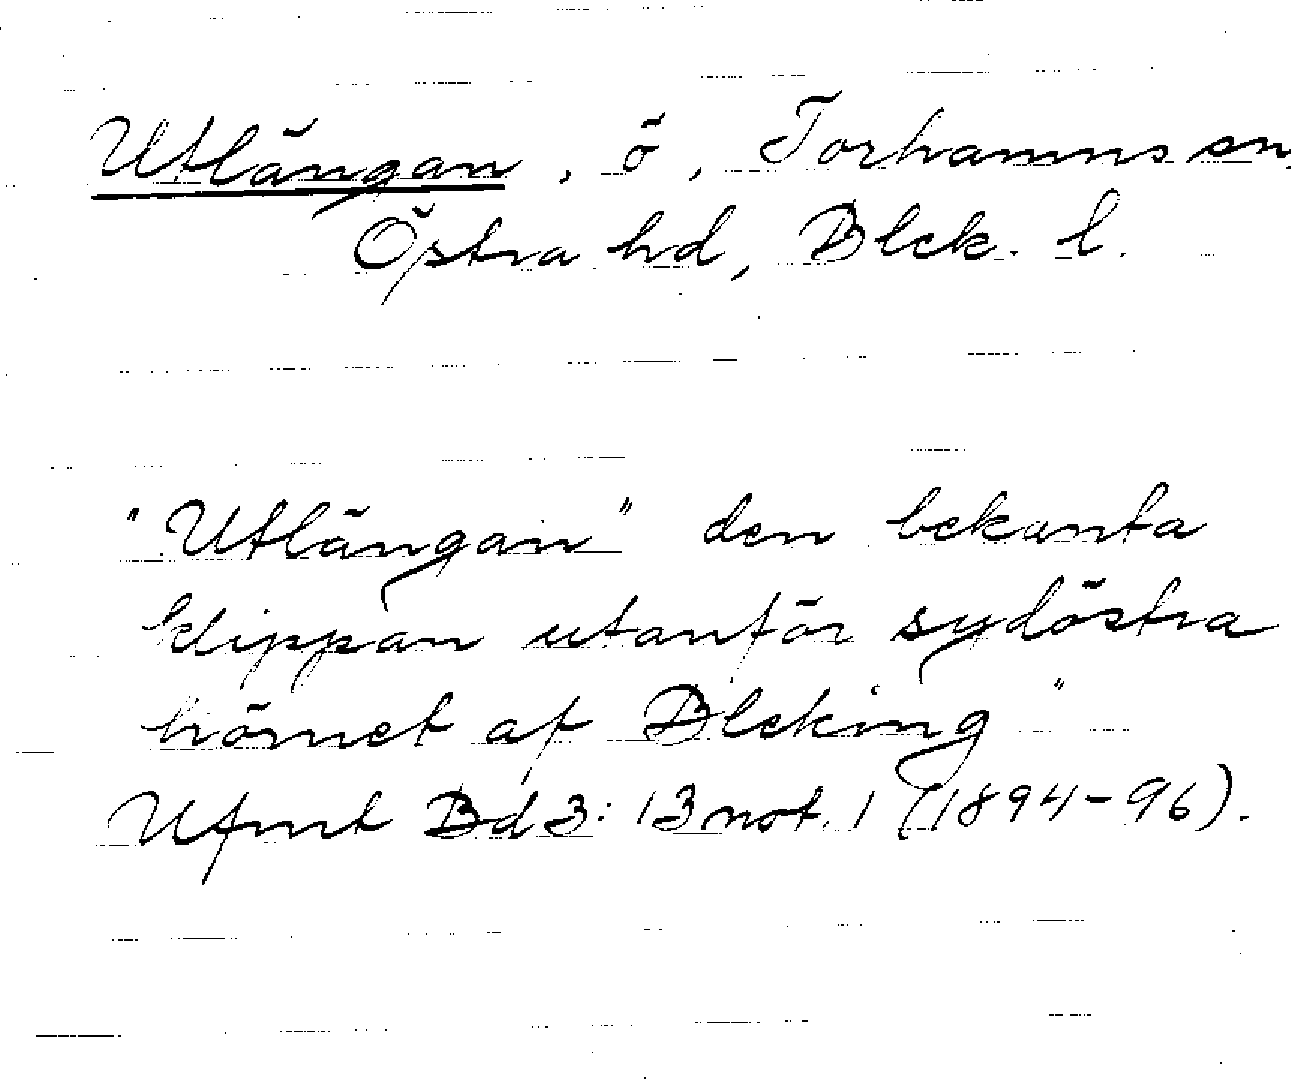 Utlängan, ö, Torhamns sn.
Östra hd, Blek. l.
"Utlängan" den bekanta
klippan utanför sydöstra
hörnet af Bleking"
Ufmt Bd 3: 13 not. 1 (1894-96).